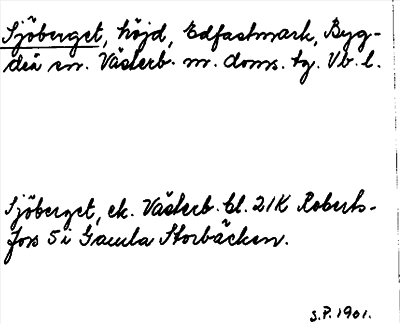 Sjöberget, höjd, Edfastmark, Byg-
deå sn. Västerb. m. doms. tg. Vb. l.
Sjöberget, ek. Västerb. bl. 21K Roberts-
fors 5 i Gamla Storbäcken.
S.P. 1901.